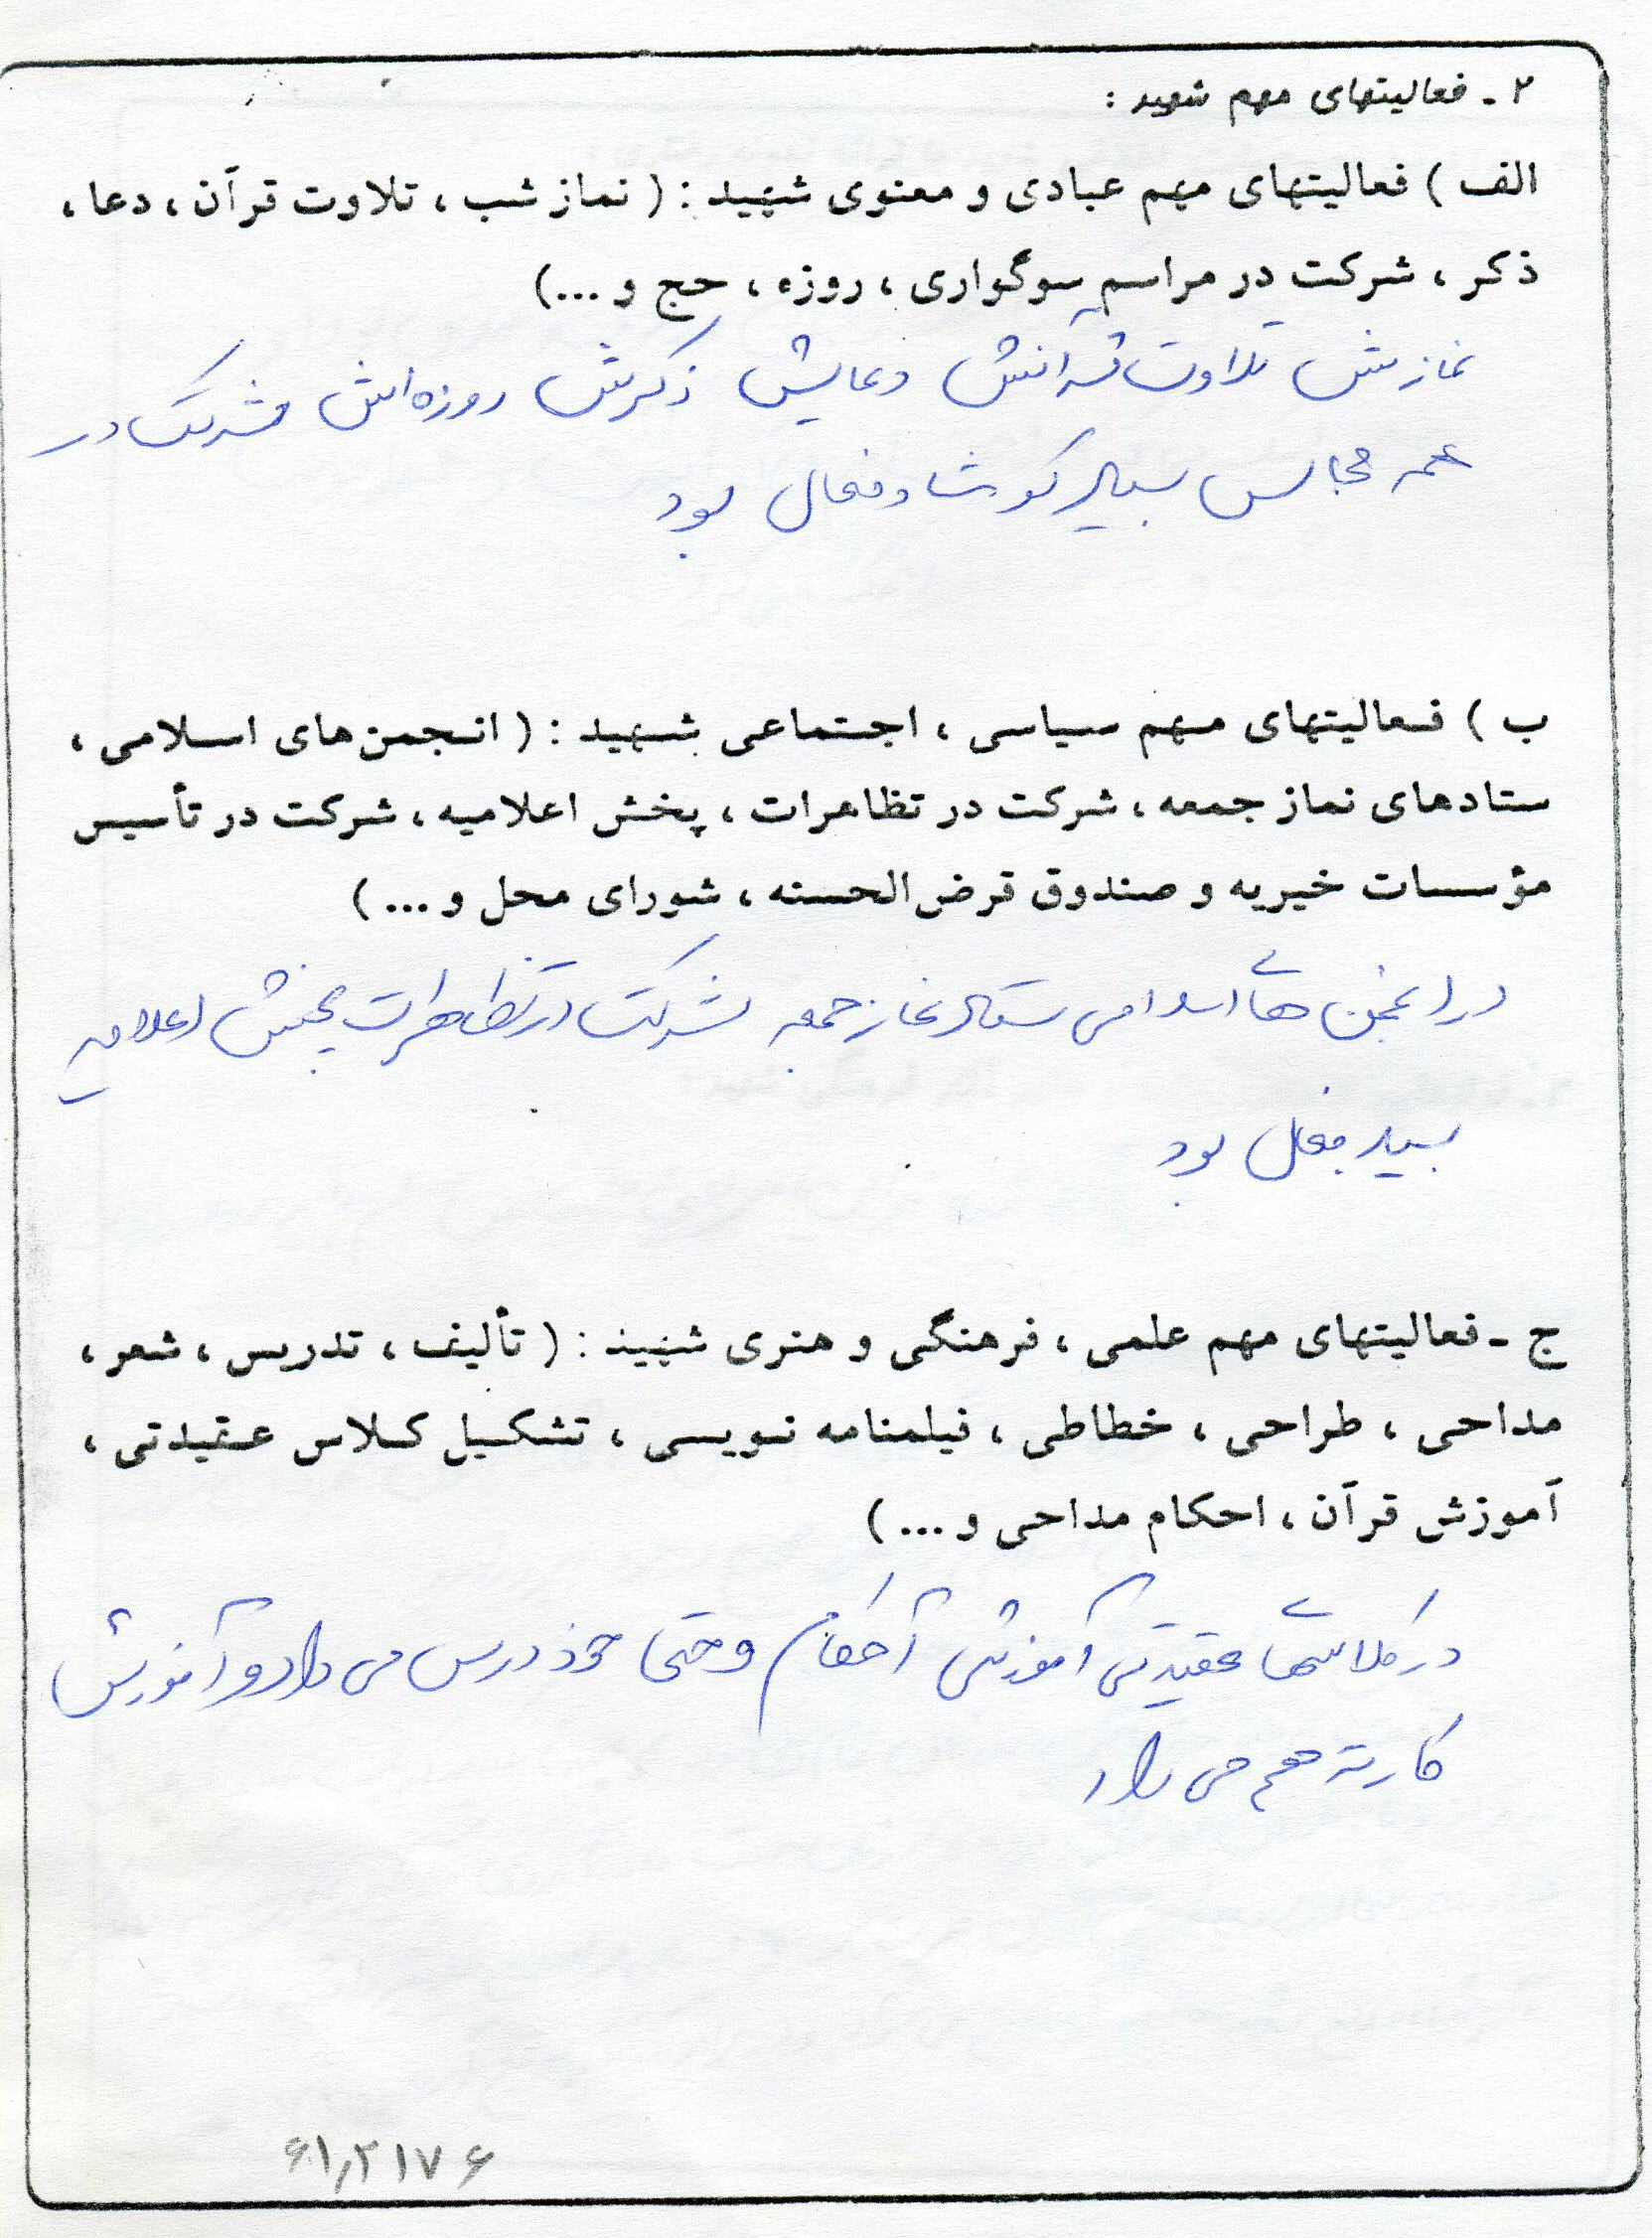 ۲ - فعالیتهای مهم شهید :
الف ) فعالیتهای مهم عبادی و معنوی شهید : ( نماز شب ، تلاوت قرآن ، دعا ،
ذکر ، شرکت در مراسم سوگواری ، روزه ، حج و ...)
نمازش تلاوت قرآنش دعایش ذکرش روزه‌اش شرکت در
همه مجالس بسیار کوشا و فعال بود
ب ) فعالیتهای مهم سیاسی ، اجتماعی شهید : ( انجمن‌های اسلامی ،
ستادهای نماز جمعه ، شرکت در تظاهرات ، پخش اعلامیه ، شرکت در تأسیس
مؤسسات خیریه و صندوق قرض‌الحسنه ، شورای محل و ... )
در انجمن های اسلامی ستاد نماز جمعه شرکت در تظاهرات پخش اعلامیه
بسیار فعال بود
ج - فعالیتهای مهم علمی ، فرهنگی و هنری شهید : ( تألیف ، تدریس ، شعر ،
مداحی ، طراحی ، خطاطی ، فیلمنامه نویسی ، تشکیل کلاس عقیدتی ،
آموزش قرآن ، احکام مداحی و ... )
در کلاسهای عقیدتی آموزش احکام وحتی خود درس می داد و آموزش
کاراته هم می داد
۶۱٫۲۱۷۶